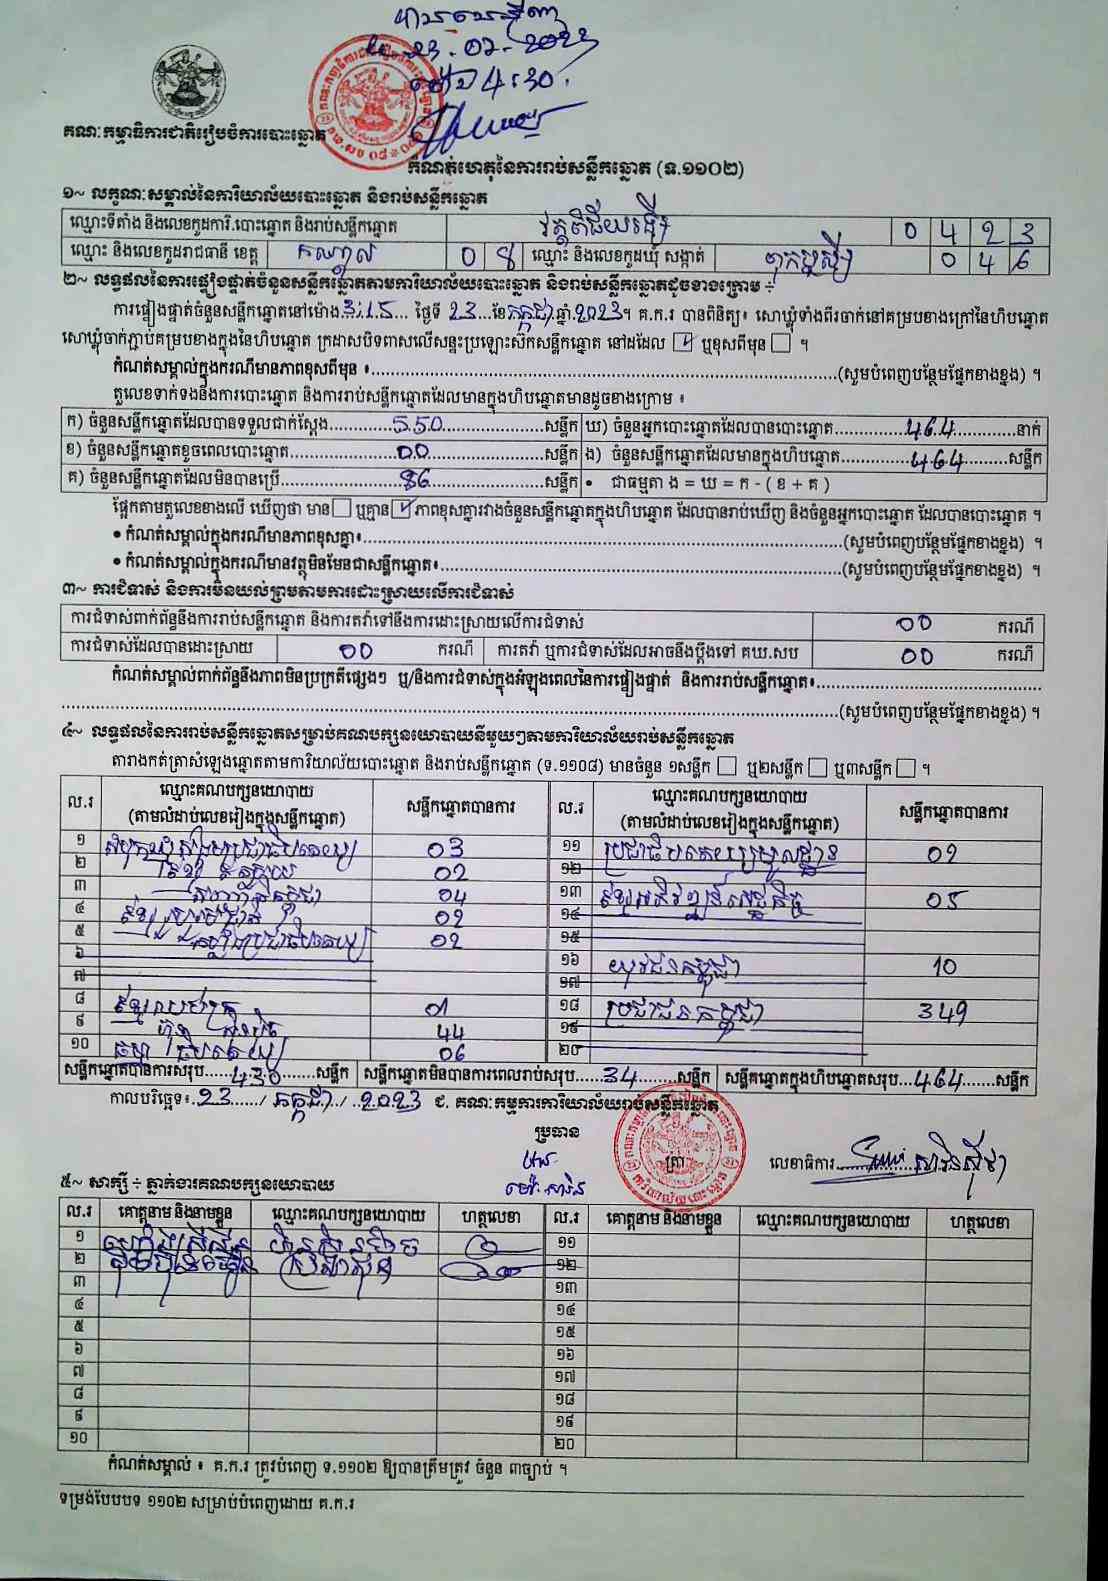 23.07.2023
4:30
គណៈកម្មាធិការជាតិរៀបចំការបោះឆ្នោត
កំណត់ហេតុនៃការរាប់សន្លឹកឆ្នោត (ទ.១១០២)
១~ លក្ខណៈសម្គាល់នៃការិយាល័យបោះឆ្នោត និងរាប់សន្លឹកឆ្នោត
ឈ្មោះទីតាំង និងលេខកូដការិ.បោះឆ្នោត និងរាប់សន្លឹកឆ្នោត 0 4 2 3
ឈ្មោះ និងលេខកូដរាជធានី ខេត្ត កណ្តាល 0 8 ឈ្មោះ និងលេខកូដឃុំ សង្កាត់ 0 4 6
២~ លទ្ធផលនៃការផ្ទៀងផ្ទាត់ចំនួនសន្លឹកឆ្នោតតាមការិយាល័យបោះឆ្នោត និងរាប់សន្លឹកឆ្នោតដូចខាងក្រោម ÷
ការផ្ទៀងផ្ទាត់ចំនួនសន្លឹកឆ្នោតនៅម៉ោង 3:15 ថ្ងៃទី 23 ខែ កក្កដា ឆ្នាំ 2023។ គ.ក.រ បានពិនិត្យ៖ សោឃ្លុំទាំងពីរចាក់នៅគម្របខាងក្រៅនៃហិបឆ្នោត
សោឃ្លុំចាក់ភ្ជាប់គម្របខាងក្នុងនៃហិបឆ្នោត ក្រដាសបិទពាសលើសន្ទះប្រឡោះសៀកសន្លឹកឆ្នោត នៅដដែល ☑ ឬខុសពីមុន ☐ ។
កំណត់សម្គាល់ក្នុងករណីមានភាពខុសពីមុន ៖ (សូមបំពេញបន្ថែមផ្នែកខាងខ្នង) ។
តួលេខទាក់ទងនឹងការបោះឆ្នោត និងការរាប់សន្លឹកឆ្នោតដែលមានក្នុងហិបឆ្នោតមានដូចខាងក្រោម ៖
ក) ចំនួនសន្លឹកឆ្នោតដែលបានទទួលជាក់ស្តែង 550 សន្លឹក ឃ) ចំនួនអ្នកបោះឆ្នោតដែលបានបោះឆ្នោត 464 នាក់
ខ) ចំនួនសន្លឹកឆ្នោតខូចពេលបោះឆ្នោត 00 សន្លឹក ង) ចំនួនសន្លឹកឆ្នោតដែលមានក្នុងហិបឆ្នោត 464 សន្លឹក
គ) ចំនួនសន្លឹកឆ្នោតដែលមិនបានប្រើ 86 សន្លឹក • ជាធម្មតា ង = ឃ = ក - ( ខ + គ )
ផ្អែកតាមតួលេខខាងលើ ឃើញថា មាន ☐ ឬគ្មាន ☑ ភាពខុសគ្នារវាងចំនួនសន្លឹកឆ្នោតក្នុងហិបឆ្នោត ដែលបានរាប់ឃើញ និងចំនួនអ្នកបោះឆ្នោត ដែលបានបោះឆ្នោត ។
• កំណត់សម្គាល់ក្នុងករណីមានភាពខុសគ្នា៖ (សូមបំពេញបន្ថែមផ្នែកខាងខ្នង) ។
• កំណត់សម្គាល់ក្នុងករណីមានវត្ថុមិនមែនជាសន្លឹកឆ្នោត៖ (សូមបំពេញបន្ថែមផ្នែកខាងខ្នង) ។
៣~ ការជំទាស់ និងការមិនយល់ព្រមតាមការដោះស្រាយលើការជំទាស់
ការជំទាស់ពាក់ព័ន្ធនឹងការរាប់សន្លឹកឆ្នោត និងការតវ៉ាទៅនឹងការដោះស្រាយលើការជំទាស់ 00 ករណី
ការជំទាស់ដែលបានដោះស្រាយ 00 ករណី ការតវ៉ា ឬការជំទាស់ដែលអាចនឹងប្តឹងទៅ គឃ.សប 00 ករណី
កំណត់សម្គាល់ពាក់ព័ន្ធនឹងភាពមិនប្រក្រតីផ្សេងៗ ឬ/និងការជំទាស់ក្នុងអំឡុងពេលនៃការផ្ទៀងផ្ទាត់ និងការរាប់សន្លឹកឆ្នោត៖
(សូមបំពេញបន្ថែមផ្នែកខាងខ្នង) ។
៤~ លទ្ធផលនៃការរាប់សន្លឹកឆ្នោតសម្រាប់គណបក្សនយោបាយនីមួយៗតាមការិយាល័យរាប់សន្លឹកឆ្នោត
តារាងកត់ត្រាសំឡេងឆ្នោតតាមការិយាល័យបោះឆ្នោត និងរាប់សន្លឹកឆ្នោត (ទ.១១០៨) មានចំនួន ១សន្លឹក ☐ ឬ២សន្លឹក ☐ ឬ៣សន្លឹក ☐ ។
ល.រ ឈ្មោះគណបក្សនយោបាយ (តាមលំដាប់លេខរៀងក្នុងសន្លឹកឆ្នោត) សន្លឹកឆ្នោតបានការ ល.រ ឈ្មោះគណបក្សនយោបាយ (តាមលំដាប់លេខរៀងក្នុងសន្លឹកឆ្នោត) សន្លឹកឆ្នោតបានការ
១ 03 ១១ ប្រជាធិបតេយ្យមូលដ្ឋាន 02
២ 02 ១២
៣ 04 ១៣ ខ្មែរអភិវឌ្ឍន៍សេដ្ឋកិច្ច 05
៤ ខ្មែររួបរួមជាតិ 02 ១៤
៥ 02 ១៥
៦ ១៦ យុវជនកម្ពុជា 10
៧ ១៧
៨ 01 ១៨ ប្រជាជនកម្ពុជា 349
៩ ហ៊្វុនស៊ិនប៉ិច 44 ១៩
១០ ធម្មាធិបតេយ្យ 06 ២០
សន្លឹកឆ្នោតបានការសរុប 430 សន្លឹក សន្លឹកឆ្នោតមិនបានការពេលរាប់សរុប 34 សន្លឹក សន្លឹកឆ្នោតក្នុងហិបឆ្នោតសរុប 464 សន្លឹក
កាលបរិច្ឆេទ៖ 23 / កក្កដា / 2023 ជ. គណៈកម្មការការិយាល័យរាប់សន្លឹកឆ្នោត
ប្រធាន
ត្រា លេខាធិការ
៥~ សាក្សី ÷ ភ្នាក់ងារគណបក្សនយោបាយ
ល.រ គោត្តនាម និងនាមខ្លួន ឈ្មោះគណបក្សនយោបាយ ហត្ថលេខា ល.រ គោត្តនាម និងនាមខ្លួន ឈ្មោះគណបក្សនយោបាយ ហត្ថលេខា
១ ១១
២ ១២
៣ ១៣
៤ ១៤
៥ ១៥
៦ ១៦
៧ ១៧
៨ ១៨
៩ ១៩
១០ ២០
កំណត់សម្គាល់ ៖ គ.ក.រ ត្រូវបំពេញ ទ.១១០២ ឱ្យបានត្រឹមត្រូវ ចំនួន ៣ច្បាប់ ។
ទម្រង់បែបបទ ១១០២ សម្រាប់បំពេញដោយ គ.ក.រ